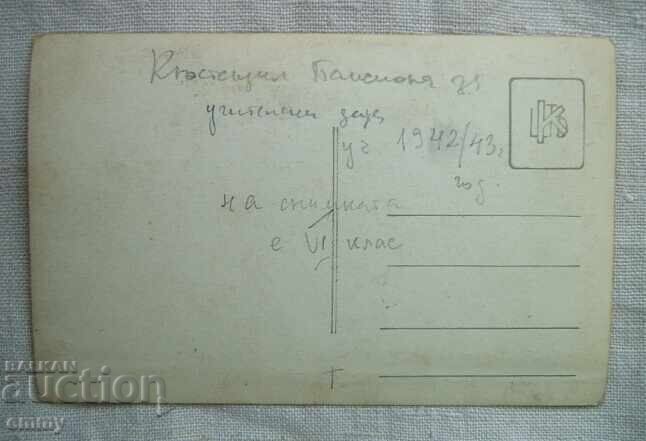 Кюстендил Пансиона за
учителски деца
уч 1942/43г
год.
на снимката
е VI клас
BALKAN
auction
emmy